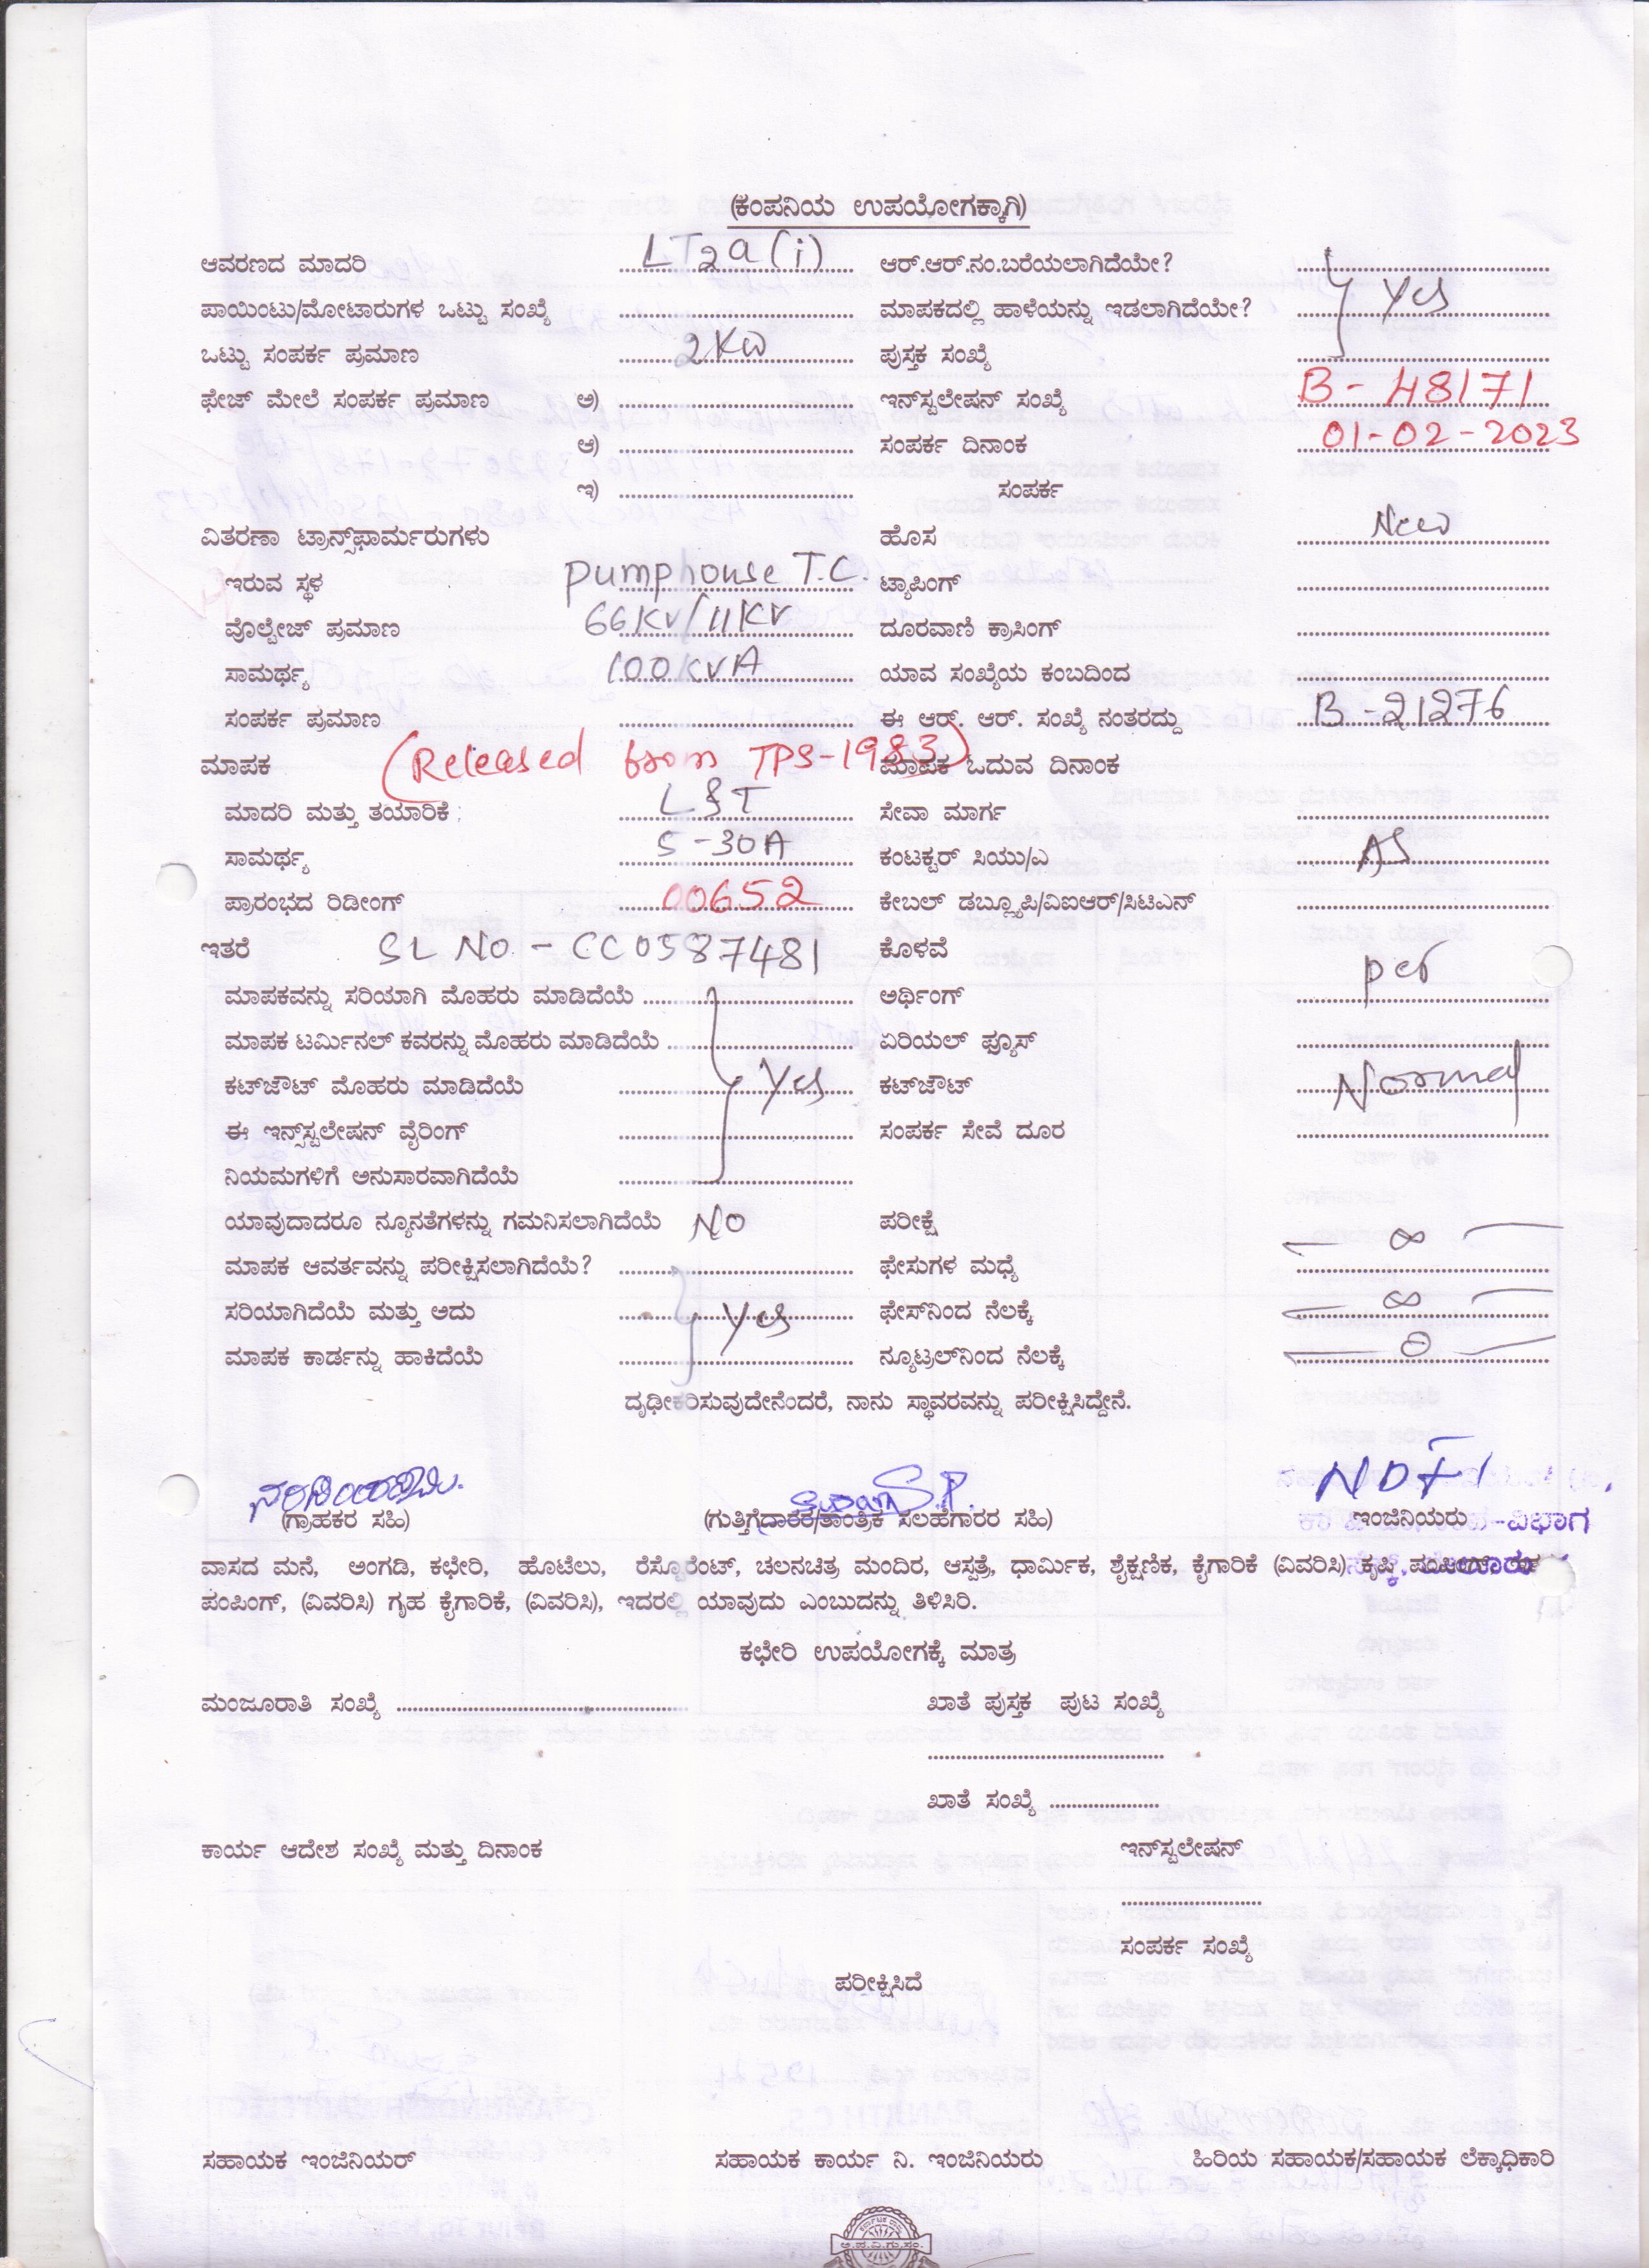 (ಕಂಪನಿಯ ಉಪಯೋಗಕ್ಕಾಗಿ)
ಆವರಣದ ಮಾದರಿ LT2a(i) ಆರ್.ಆರ್.ನಂ.ಬರೆಯಲಾಗಿದೆಯೇ?
ಪಾಯಿಂಟು/ಮೋಟಾರುಗಳ ಒಟ್ಟು ಸಂಖ್ಯೆ ಮಾಪಕದಲ್ಲಿ ಹಾಳೆಯನ್ನು ಇಡಲಾಗಿದೆಯೇ? Yes
ಒಟ್ಟು ಸಂಪರ್ಕ ಪ್ರಮಾಣ 2KW ಪುಸ್ತಕ ಸಂಖ್ಯೆ
ಫೇಜ್ ಮೇಲೆ ಸಂಪರ್ಕ ಪ್ರಮಾಣ ಅ) ಇನ್‌ಸ್ಟಲೇಷನ್ ಸಂಖ್ಯೆ B-48171
ಆ) ಸಂಪರ್ಕ ದಿನಾಂಕ 01-02-2023
ಇ) ಸಂಪರ್ಕ
ವಿತರಣಾ ಟ್ರಾನ್ಸ್‌ಫಾರ್ಮರುಗಳು ಹೊಸ New
ಇರುವ ಸ್ಥಳ Pumphouse T.C. ಟ್ಯಾಪಿಂಗ್
ವೊಲ್ಟೇಜ್ ಪ್ರಮಾಣ 66KV/11KV ದೂರವಾಣಿ ಕ್ರಾಸಿಂಗ್
ಸಾಮರ್ಥ್ಯ 100KVA ಯಾವ ಸಂಖ್ಯೆಯ ಕಂಬದಿಂದ
ಸಂಪರ್ಕ ಪ್ರಮಾಣ ಈ ಆರ್. ಆರ್. ಸಂಖ್ಯೆ ನಂತರದ್ದು B-21276
ಮಾಪಕ (Released from TPS-1983) ಮಾಪಕ ಓದುವ ದಿನಾಂಕ
ಮಾದರಿ ಮತ್ತು ತಯಾರಿಕೆ : L&T ಸೇವಾ ಮಾರ್ಗ
ಸಾಮರ್ಥ್ಯ 5-30A ಕಂಟಕ್ಟರ್ ಸಿಯು/ಎ AS
ಪ್ರಾರಂಭದ ರಿಡೀಂಗ್ 00652 ಕೇಬಲ್ ಡಬ್ಲ್ಯೂಪಿ/ವಿಐಆರ್/ಸಿಟಿಎನ್
ಇತರೆ SL NO - CC0587481 ಕೊಳವೆ per
ಮಾಪಕವನ್ನು ಸರಿಯಾಗಿ ಮೊಹರು ಮಾಡಿದೆಯೆ ಅರ್ಥಿಂಗ್
ಮಾಪಕ ಟರ್ಮಿನಲ್ ಕವರನ್ನು ಮೊಹರು ಮಾಡಿದೆಯೆ ಏರಿಯಲ್ ಫ್ಯೂಸ್
ಕಟ್‌ಔಟ್ ಮೊಹರು ಮಾಡಿದೆಯೆ Yes ಕಟ್‌ಔಟ್ Normal
ಈ ಇನ್ಸ್‌ಸ್ಟಲೇಷನ್ ವೈರಿಂಗ್ ಸಂಪರ್ಕ ಸೇವೆ ದೂರ
ನಿಯಮಗಳಿಗೆ ಅನುಸಾರವಾಗಿದೆಯೆ
ಯಾವುದಾದರೂ ನ್ಯೂನತೆಗಳನ್ನು ಗಮನಿಸಲಾಗಿದೆಯೆ NO ಪರೀಕ್ಷೆ
ಮಾಪಕ ಆವರ್ತವನ್ನು ಪರೀಕ್ಷಿಸಲಾಗಿದೆಯೆ? ಫೇಸುಗಳ ಮಧ್ಯೆ ∞
ಸರಿಯಾಗಿದೆಯೆ ಮತ್ತು ಅದು Yes ಫೇಸ್‌ನಿಂದ ನೆಲಕ್ಕೆ ∞
ಮಾಪಕ ಕಾರ್ಡನ್ನು ಹಾಕಿದೆಯೆ ನ್ಯೂಟ್ರಲ್‌ನಿಂದ ನೆಲಕ್ಕೆ
ದೃಢೀಕರಿಸುವುದೇನೆಂದರೆ, ನಾನು ಸ್ಥಾವರವನ್ನು ಪರೀಕ್ಷಿಸಿದ್ದೇನೆ.
(ಗ್ರಾಹಕರ ಸಹಿ) (ಗುತ್ತಿಗೆದಾರಕ/ತಾಂತ್ರಿಕ ಸಲಹೆಗಾರರ ಸಹಿ) ಇಂಜಿನಿಯರು -ವಿಭಾಗ
ವಾಸದ ಮನೆ, ಅಂಗಡಿ, ಕಛೇರಿ, ಹೊಟೆಲು, ರೆಸ್ಟೊರೆಂಟ್, ಚಲನಚಿತ್ರ ಮಂದಿರ, ಆಸ್ಪತ್ರೆ, ಧಾರ್ಮಿಕ, ಶೈಕ್ಷಣಿಕ, ಕೈಗಾರಿಕೆ (ವಿವರಿಸಿ) ಕೃಷಿ
ಪಂಪಿಂಗ್, (ವಿವರಿಸಿ) ಗೃಹ ಕೈಗಾರಿಕೆ, (ವಿವರಿಸಿ), ಇದರಲ್ಲಿ ಯಾವುದು ಎಂಬುದನ್ನು ತಿಳಿಸಿರಿ.
ಕಛೇರಿ ಉಪಯೋಗಕ್ಕೆ ಮಾತ್ರ
ಮಂಜೂರಾತಿ ಸಂಖ್ಯೆ ಖಾತೆ ಪುಸ್ತಕ ಪುಟ ಸಂಖ್ಯೆ
ಖಾತೆ ಸಂಖ್ಯೆ
ಕಾರ್ಯ ಆದೇಶ ಸಂಖ್ಯೆ ಮತ್ತು ದಿನಾಂಕ ಇನ್‌ಸ್ಟಲೇಷನ್
ಸಂಪರ್ಕ ಸಂಖ್ಯೆ
ಪರೀಕ್ಷಿಸಿದೆ
ಸಹಾಯಕ ಇಂಜಿನಿಯರ್ ಸಹಾಯಕ ಕಾರ್ಯ ನಿ. ಇಂಜಿನಿಯರು ಹಿರಿಯ ಸಹಾಯಕ/ಸಹಾಯಕ ಲೆಕ್ಕಾಧಿಕಾರಿ